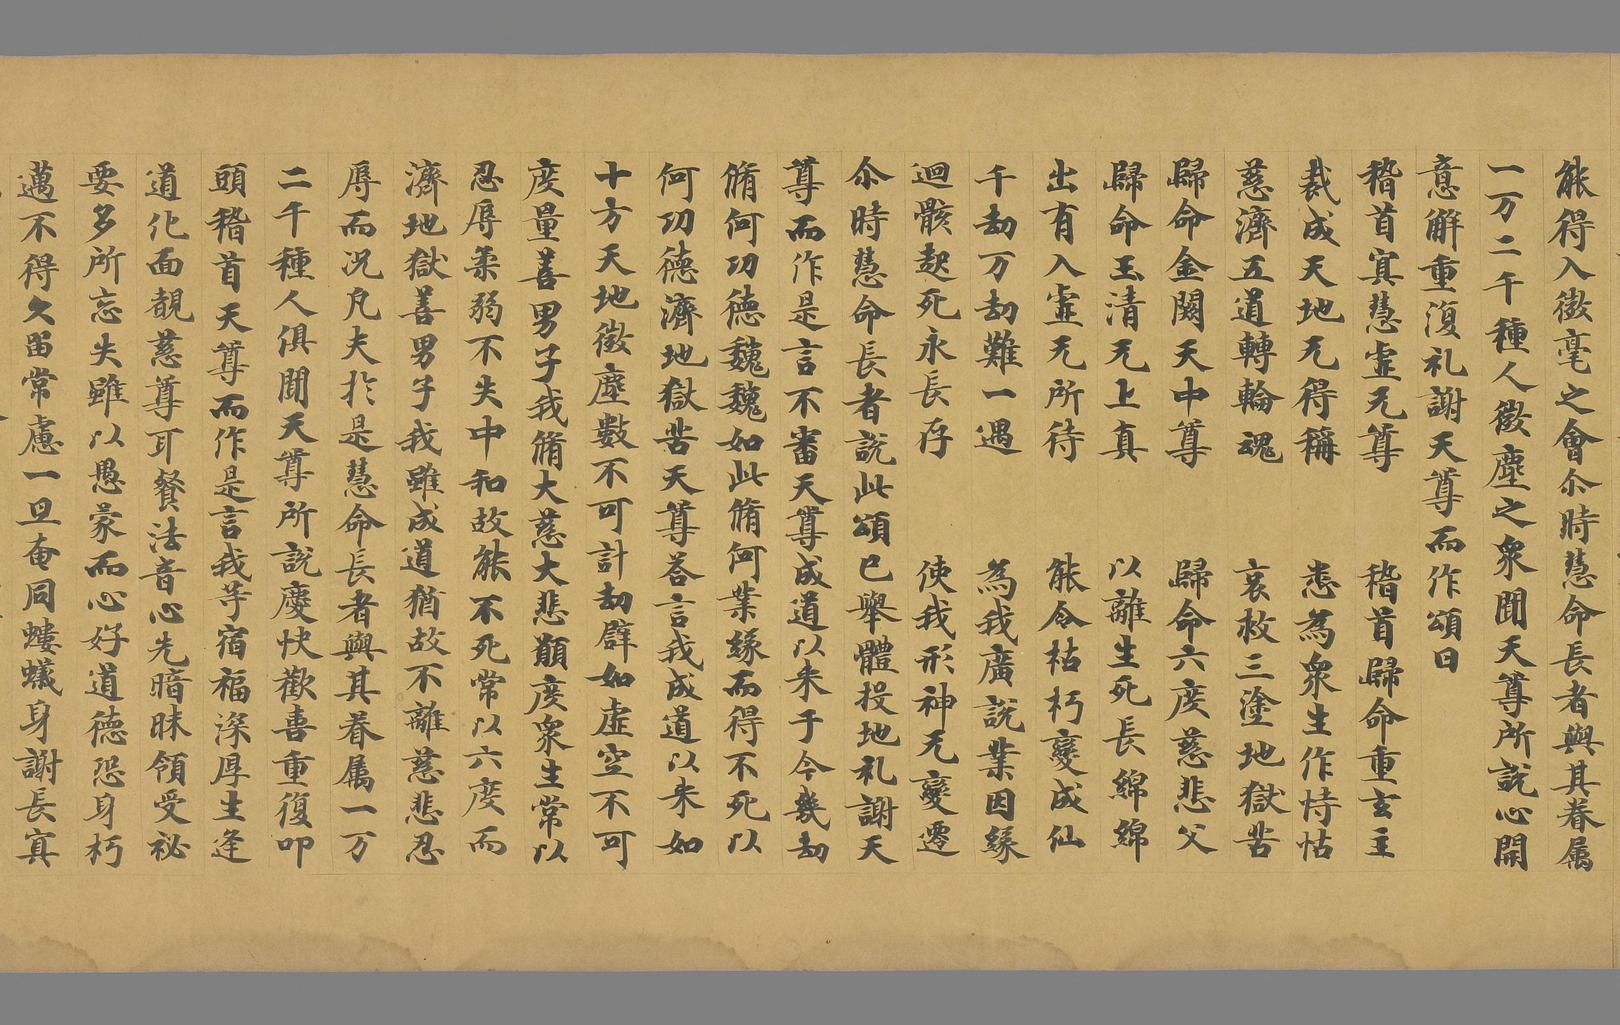 能得入微毫之會尒時慧命長者與其眷属
一万二千種人微塵之衆聞天尊所說心開
意解重復礼謝天尊而作頌曰
稽首真慧虛无尊　稽首歸命重玄主
裁成天地无得稱　悉為衆生作恃怙
慈濟五道轉輪魂　哀救三塗地獄苦
歸命金闕天中尊　歸命六度慈悲父
歸命玉清无上真　以離生死長綿綿
出有入虛无所待　能令枯朽變成仙
千劫万劫難一遇　為我廣說業因緣
迴骸起死永長存　使我形神无變遷
尒時慧命長者說此頌已舉體投地礼謝天
尊而作是言不審天尊成道以来于今幾劫
脩何功德巍巍如此脩何業緣而得不死以
何功德濟地獄苦天尊荅言我成道以来如
十方天地微塵數不可計劫辟如虛空不可
度量善男子我脩大慈大悲願度衆生常以
忍辱柔弱不失中和故能不死常以六度而
濟地獄善男子我雖成道猶故不離慈悲忍
辱而况凡夫扵是慧命長者與其眷属一万
二千種人俱聞天尊所說慶快歡喜重復叩
頭稽首天尊而作是言我等宿福深厚生逢
道化面覩慈尊耳餐法音心先暗昧領受祕
要多所忘失雖以愚蒙而心好道德恐身朽
邁不得久留常慮一旦奄同螻蟻身謝長寘